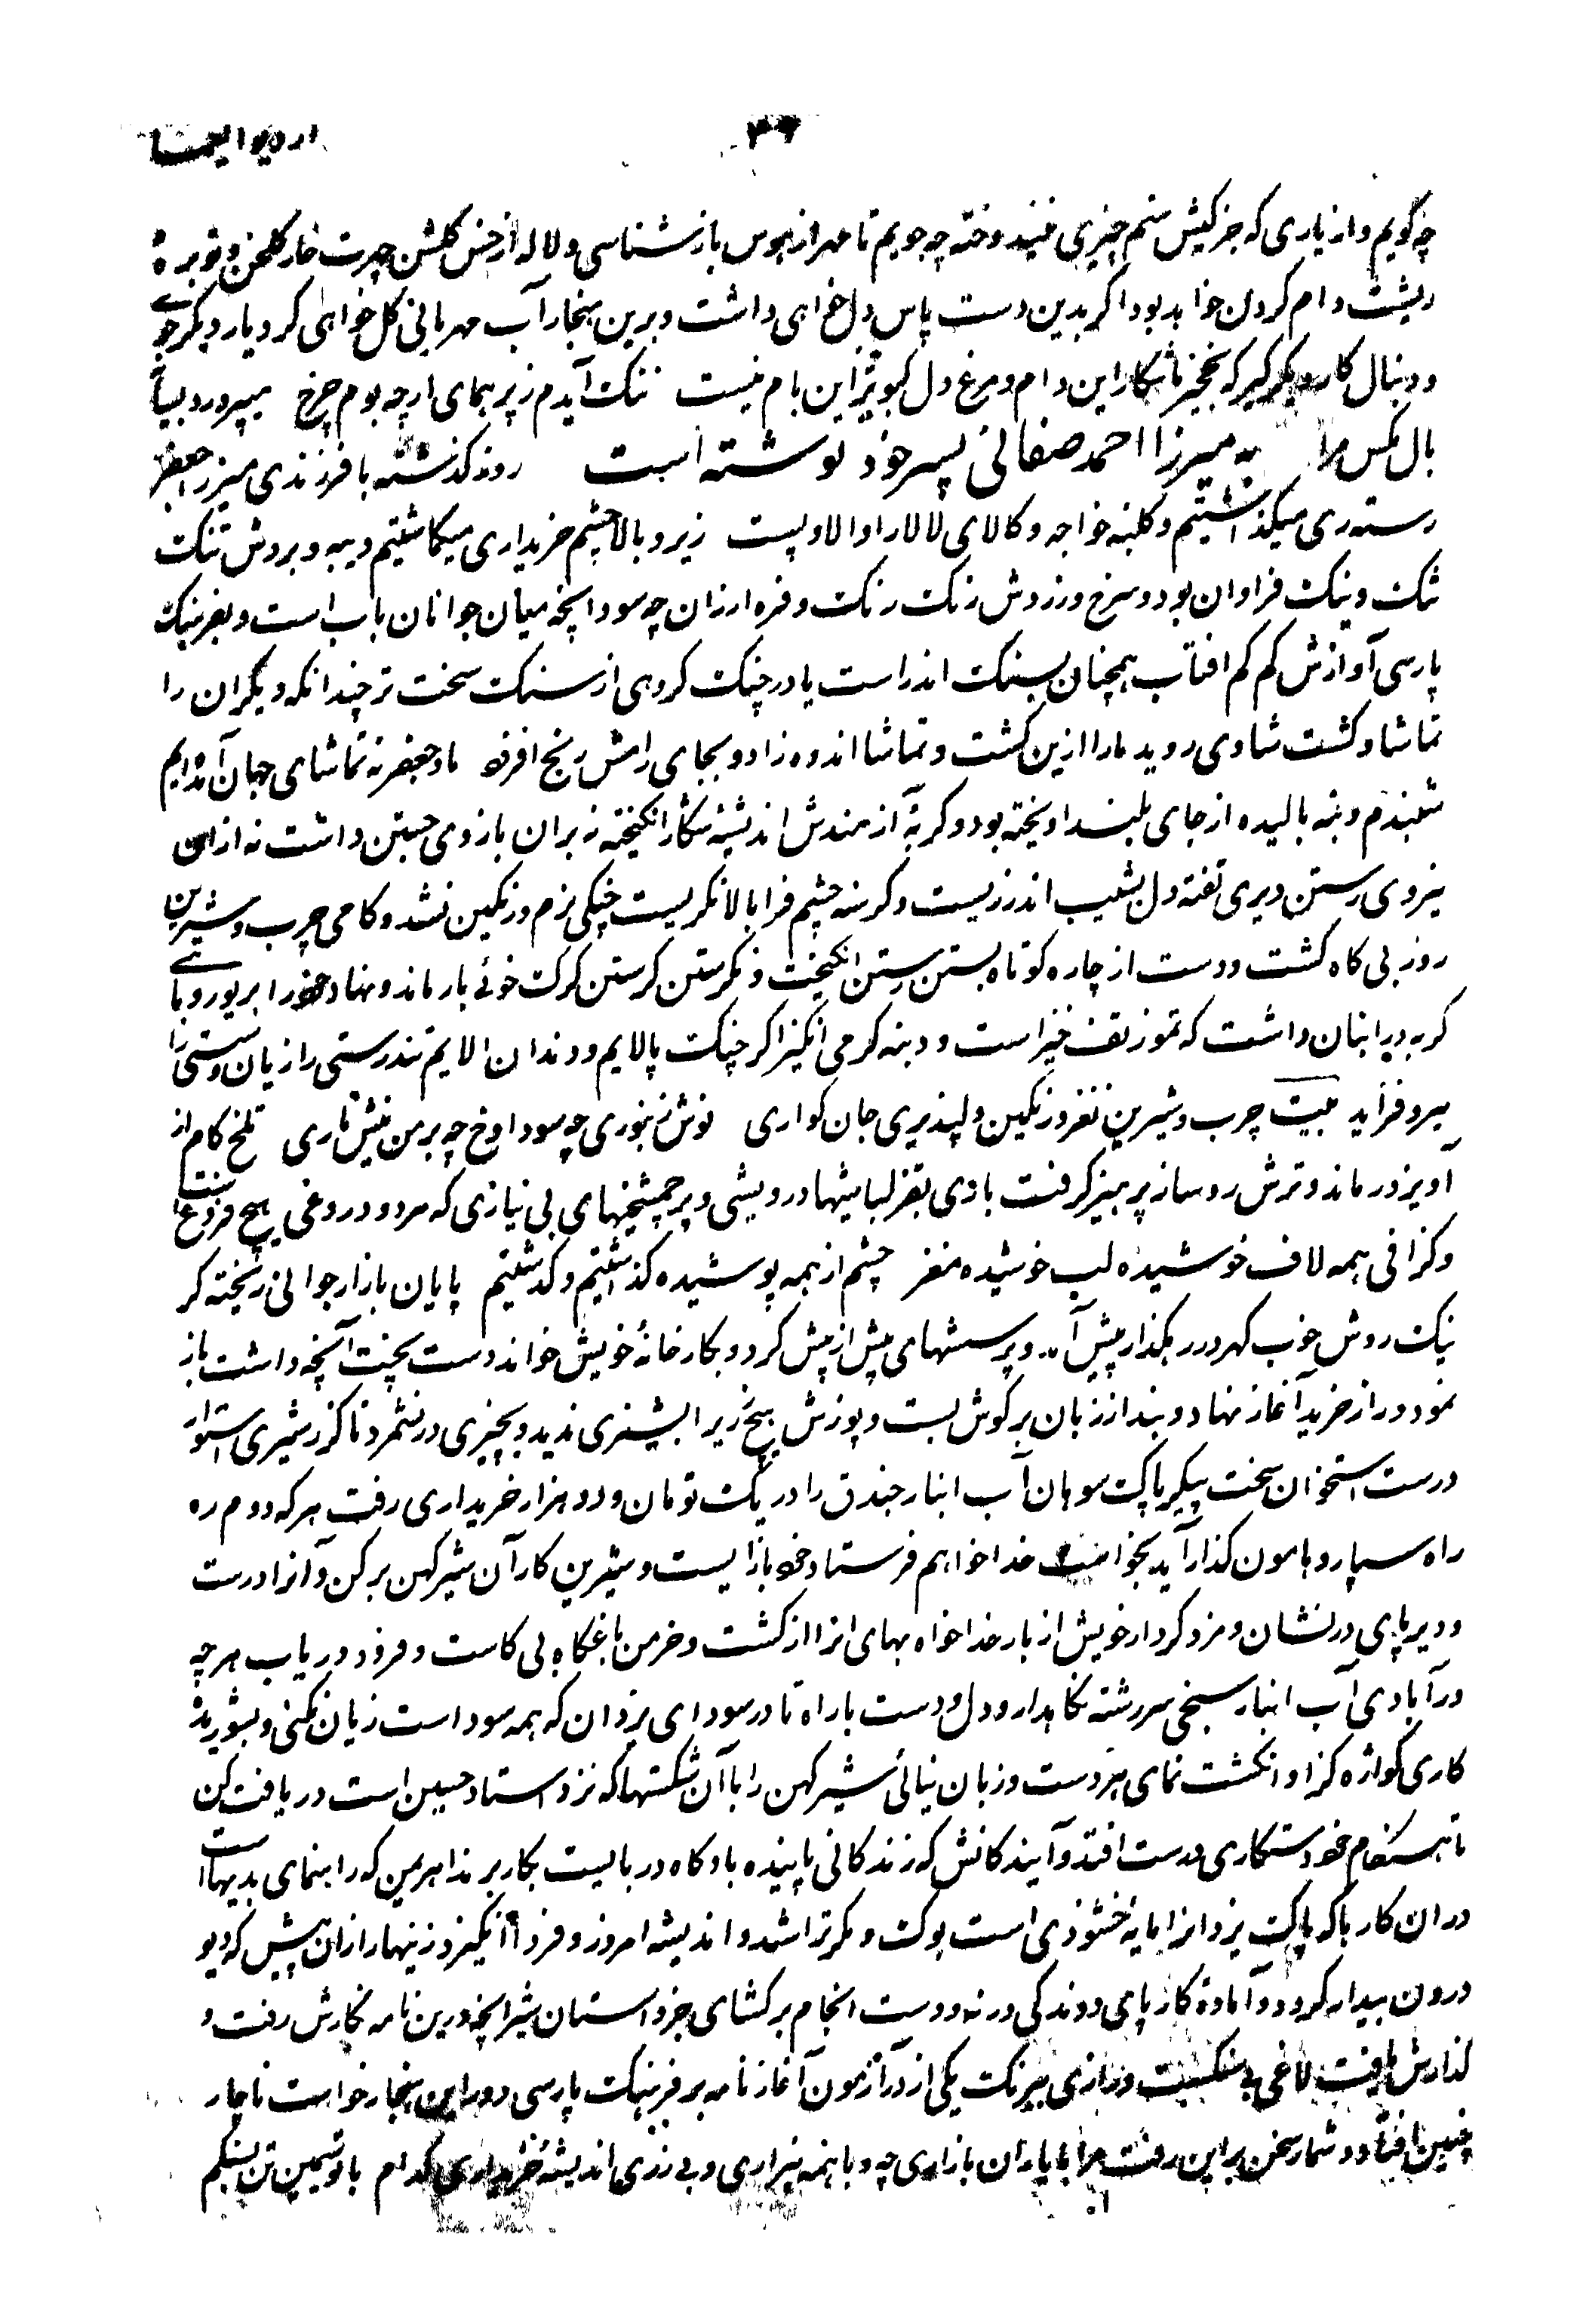 ۳۶
چه گویم و از یاری که جز کیش ستم چیزی نیندوخته چه جویم تا مهر از هوس بازشناسی و لاله از خس گلشن چهرت خار گلخن و توبره
ریشت دام کردن خواهد بود اگر بدین دست پاس دل خواهی داشت و برین هنجار آب مهربانی گل خواهی کرد یار دیگر جوی
و دنبال کار دیگر گیر که نخجیر ما شکار این دام و مرغ دل کبوتر این بام نیست ننگ آیدم زپر همای ارچه بوم چرخ میپرورد بسایه
بال مگس مرا به میرزا احمد صفائی پسر خود نوشته است روز گذشته با فرزندی میرزا جعفر
رسته ری میگذاشتیم و کلبه خواجه و کالای لالا را والا و پست زیر و بالا چشم خریداری میگماشتیم دیبه و بردش تنگ
تنگ و نیک فراوان بود و سرخ و زردش رنگ رنگ و فره ارزان چه سود آنچه میان جوانان باب است و بفرهنگ
پارسی آوازش کم کم افتاب همچنان بسنگ اندر است یا در چنگ گروهی از سنگ سخت تر چندانکه دیگران را
تماشا و گشت شادی روید ما را ازین گشت و تماشا اندوه زاد و بجای رامش رنج افزود ما و جعفر نه تماشای جهان آمده‌ایم
شنبدم دنبه بالیده از جای بلند اویخته بود و گربه آزمندش اندیشه شکار انگیخته نه بران بازوی جستن داشت نه از آن
نیروی رستن دیری تفته دل بشیب اندر زیست و گرسنه چشم فرا بالا نگریست چنگی نرم و رنگین نشد و کامی چرب و شیرین
روز بی گاه گشت و دست از چاره کوتاه بستن رستن انگیخت و نگرستن گرستن گرگ خوئی بار ماند و نهاد خود را بریو روباهی
گربه در انبان داشت که تموز تف خیز است و دنبه گرمی انگیز اگر چنگ پالایم و دندان الایم تندرستی را زیان و سستی را
نیرو فزاید بیت چرب و شیرین نغز و رنگین دلپذیری جان گواری نوش زنبوری چه سود اوخ چه بر من نیش ماری تلخ کام از
آویز در ماند و ترش رو ساز پرهیز گرفت بادی بمغز لباسیها درویشی و پرچشمیهای بی نیازی که مردود دروغی هیچ فروغ است
و گزافی همه لاف خوشیده لب خوشیده مغز چشم از همه پوشیده گذاشتیم و گذشتیم پایان بازار جوانی ریخته گر
نیک روش خوب گهر در رهگذار پیش آمد و پرسشهای بیش از پیش کرد و بکارخانه خویش خواند دست پخت آنچه داشت باز
نمود و راز خرید آغاز نهاد و پند اندرز بان بر گوش بست و پوزش هیچ زیرا بشیزی ندید و بچیزی در نشمرد ناگزر شیری استوار
درست استخوان سخت پیکر پاک سوهان آب انبار جندق را در یک تومان و دو هزار خریداری رفت هر که دوم ره
راه سپارد و هامون گذار آید بخواست خدا خواهم فرستاد خود باز ایست و شیرین کار آن شیر کهن بر کن و آنرا درست
و دیر پای در نشان و مزد کردار خویش از بار خدا خواه بهای انرا از کشت و خرمن باغگاه بی کاست و فزود دریاب هرچه
در آبادی آب انبار سنجی سررشته نگاهدار و دل و دست باراه تا در سودای یزدان که همه سود است زیان نکنی و بشوریده
کاری گوازه گزاو انگشت نمای هر دست و زبان نیائی شیر کهن را با آن شکستها که نزد استاد حسین است دریافت کن
تا هنگام خود ستکاری درست افتد و آیندگانش که زندگانی پاینده باد گاه دربایست بکار برند اهرمن که راهنمای بدیها است
در ان کارها که پاک یزدانرا مایه خشنودی است بوک و مگر تراشد و اندیشه امروز و فردا انگیزد زنهار ازان پیش که دیو
درون بیدار گردد و آماده کار پای دوندگی در نه و دست انجام بر گشای جز داستان شیر آنچه درین نامه نگارش رفت و
گذارش یافت لاغی بی سنگست و رازی بیرنگ یکی از در آزمون آغاز نامه بر فرهنگ پارسی و در این هنجار خواست ناچار
چنین افتاد و شمار سخن بر این رفت مرا با یاران بازاری چه و با همه بیزاری و بی زری اندیشه خریداری کدام با توسیمین تن سنگم